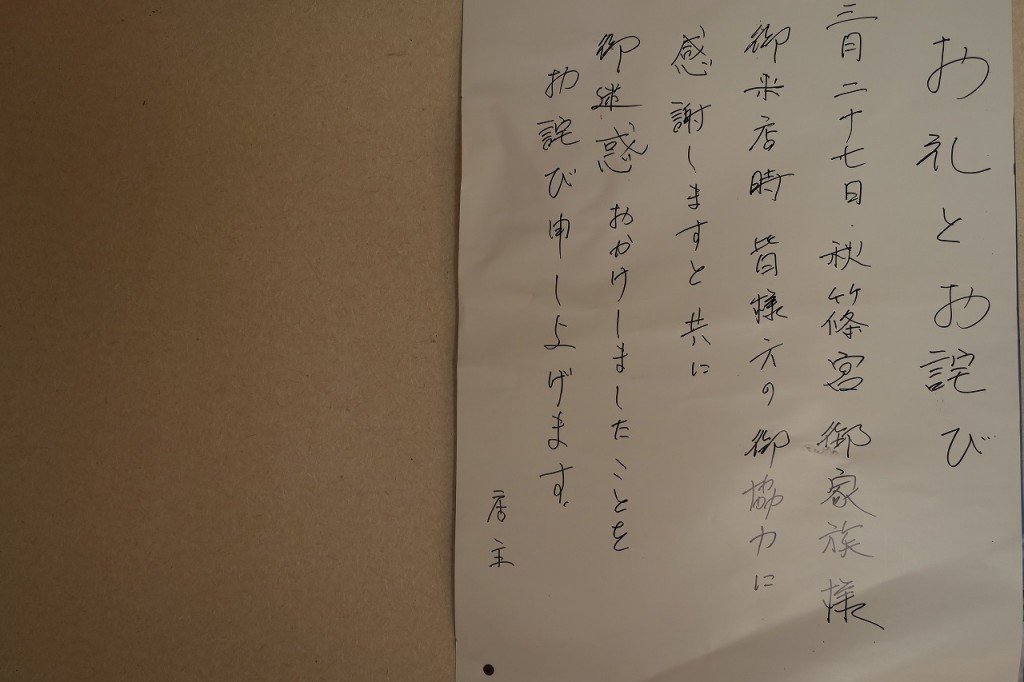 お礼とお詫び
三月二十七日 秋篠宮御家族様
御来店時 皆様方の御協力に
感謝しますと共に
御迷惑おかけしましたことを
お詫び申し上げます。
店主